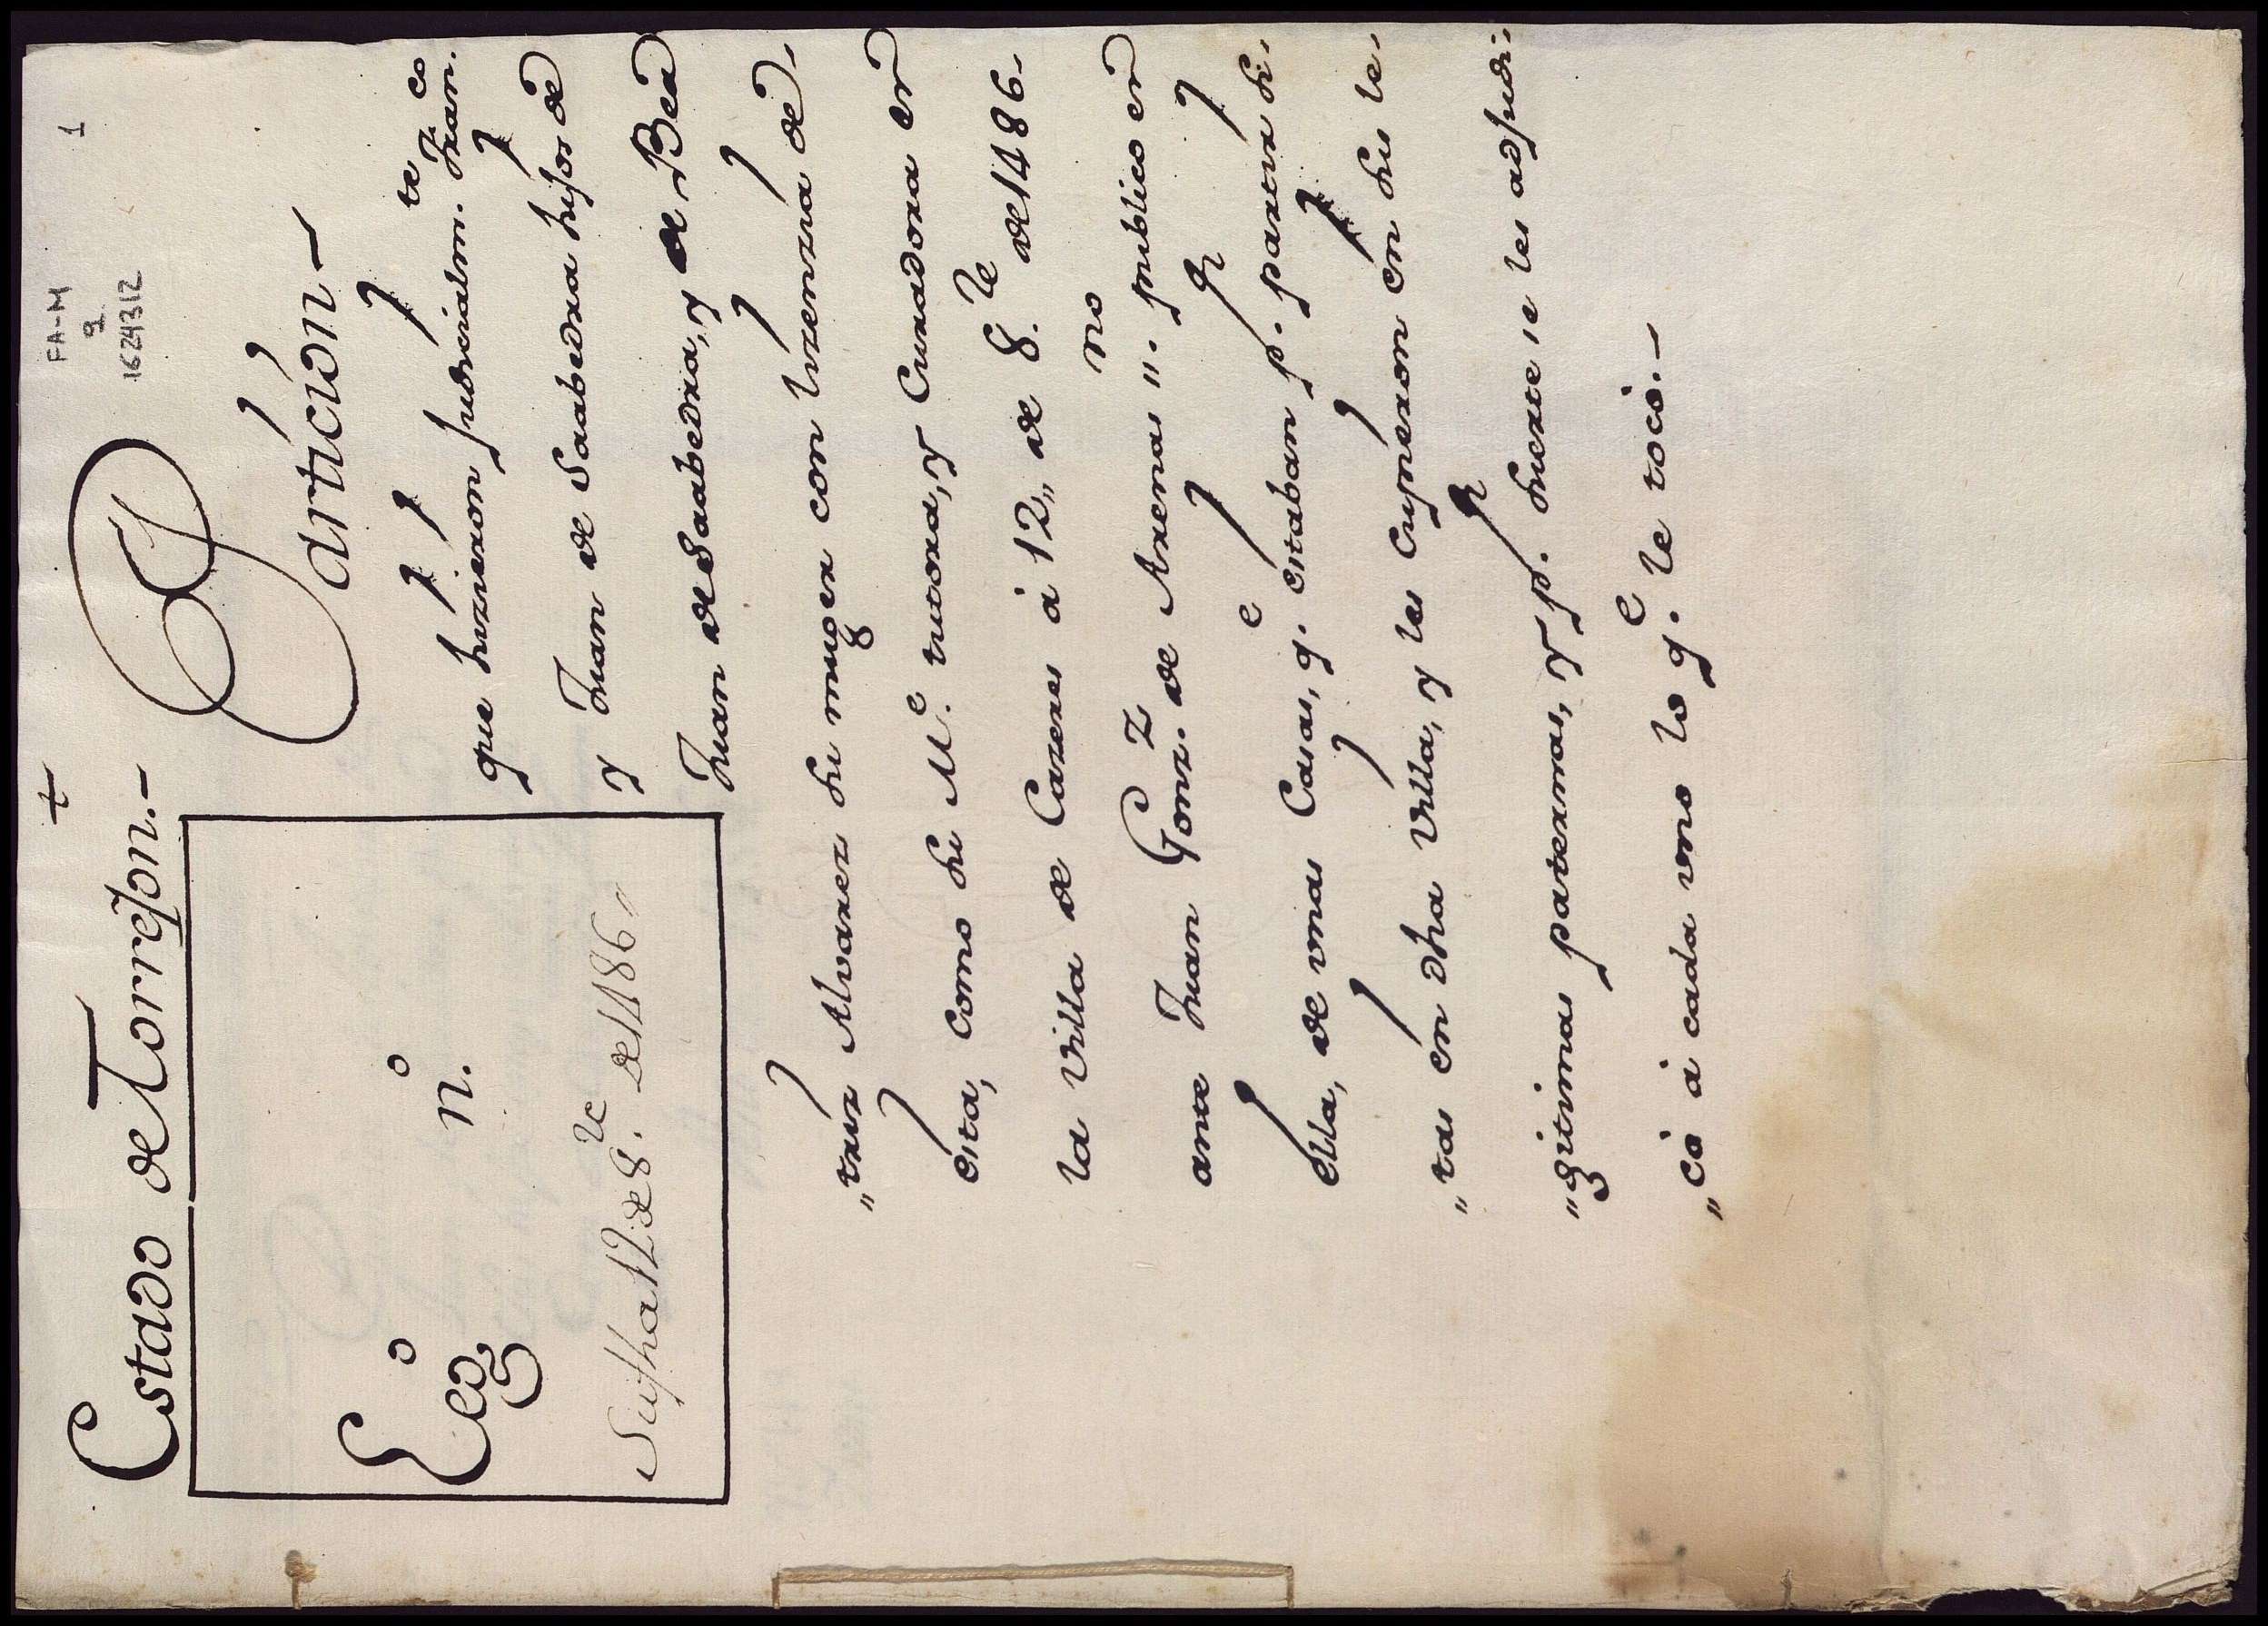 t
FA-M
9
1624312
1
Estado de Torrejon.
Partición
Leg.º n.º
Su fha 12 de 8.re de 1486
que hizieron judicialm.te Fran.co
y Juan de Saabedra hijos de
Juan de Saabedra, y de Bea
„triz Alvarez su muger con lizenzia de
esta, como su M.e tutora, y Curadora en
la Villa de Cazeres à 12„ de 8.re de 1486
ante Juan Gonz.z de Arenas „.no publico en
ella, de unas Casas, q.e estaban p.r partir si
„tas en dha Villa, y les Cupieron en sus le
„gitimas paternas, y p.r suerte se les adjudi
„cò à cada uno lo q.e le tocò.